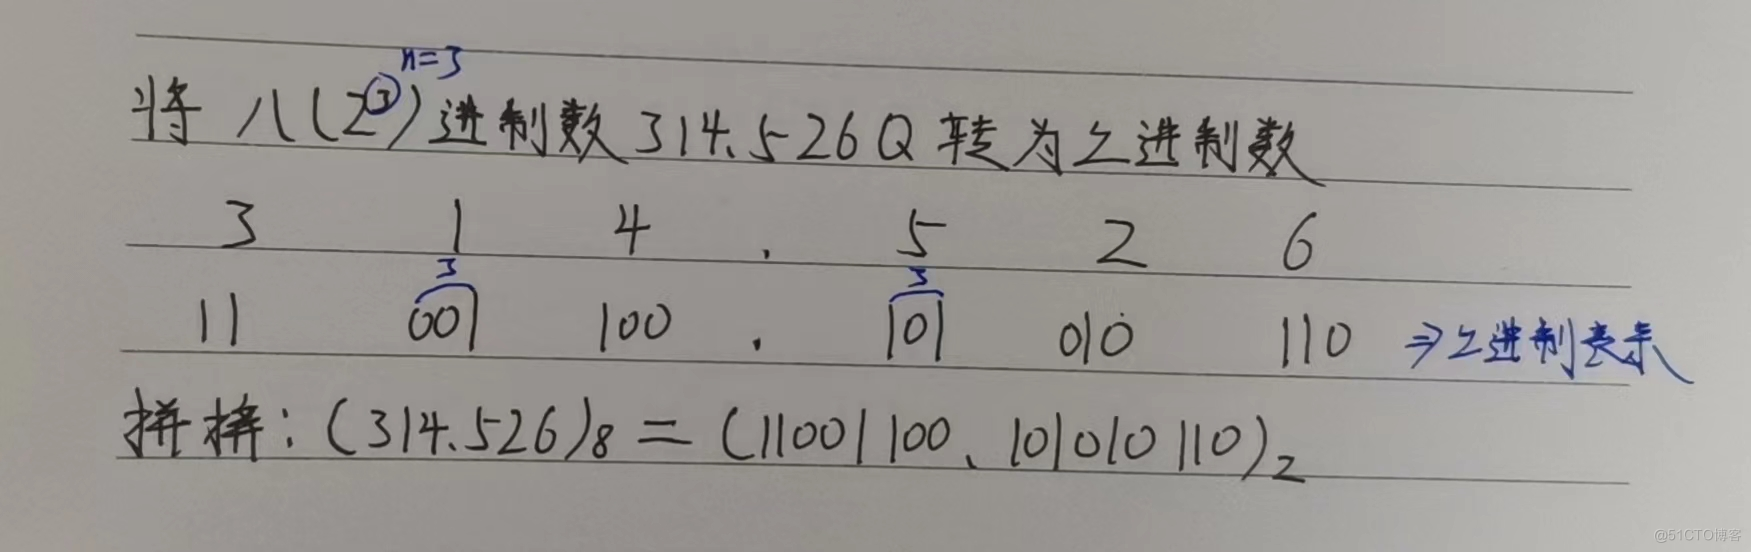 n=3
将八(2³)进制数314.526Q转为二进制数
3 1 4 . 5 2 6
3 3
11 001 100 . 101 010 110 ⇒二进制表示
拼接:(314.526)₈=(11001100.101010110)₂
@51CTO博客